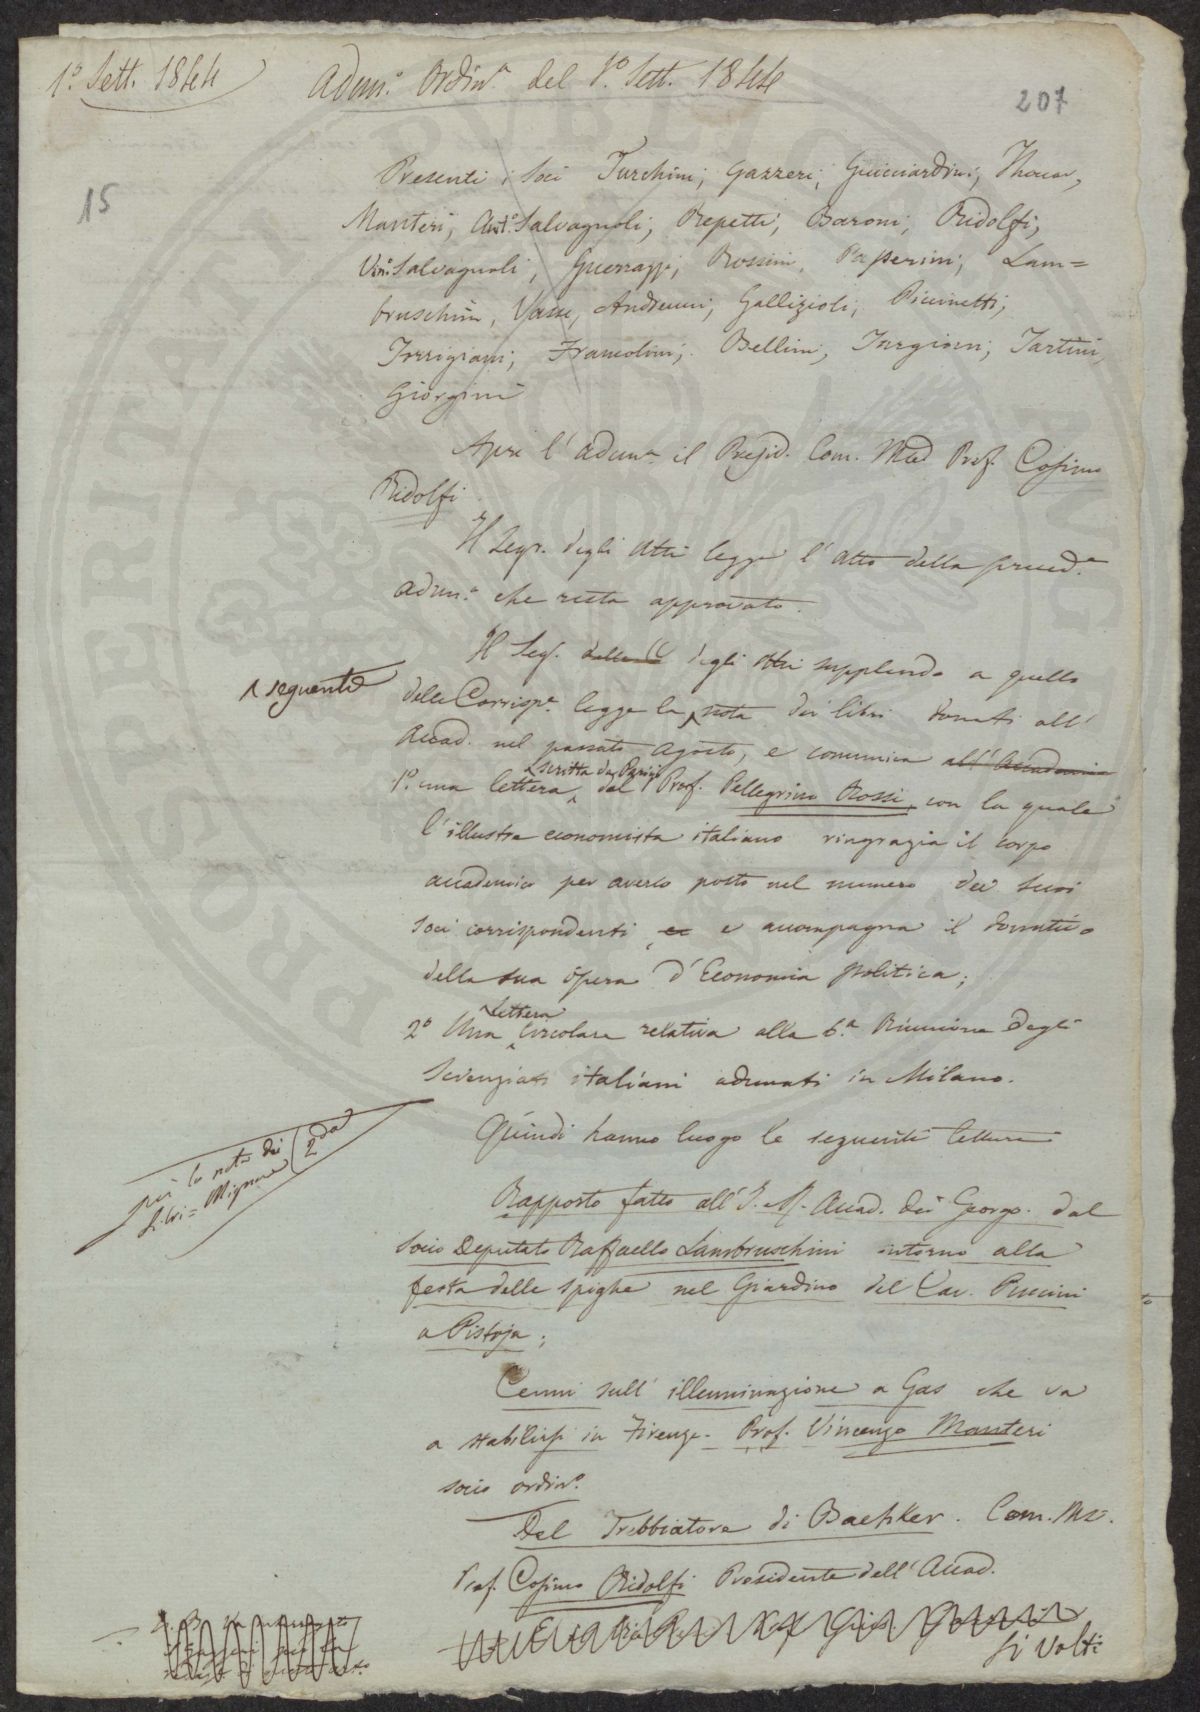 1° Sett. 1844
Adun.ª Ordin.ª del 1° Sett. 1844
207
15
Presenti i Soci Turchini, Gazzeri, Guicciardini, Thouar,
Manteri, Ant.° Salvagnoli, Repetti, Baroni, Ridolfi,
Vin.° Salvagnoli, Guerrazzi, Rossini, Passerini, Lam=
bruschini, Vasse, Andreucci, Gallizioli, Piccinetti,
Torrigiani, Francolini, Bellini, Targioni, Tartini,
Giorgini
Apre l'Adun.ª il Presid. Com. Prof. Cosimo
Ridolfi
Il Segr. degli Atti legge l'Atto della preced.ª
adun.ª che resta approvato.
Il Seg. delle C degli Atti supplendo a quello
1 seguente
delle Corrisp.ᵉ legge la nota dei libri donati all'
Accad. nel passato Agosto, e comunica all'Accademia
scritta da Parigi
1°. una lettera dal Prof. Pellegrino Rossi, con la quale
l'illustre economista italiano ringrazia il corpo
accademico per averlo posto nel numero dei suoi
soci corrispondenti, e accompagna il donativo
della sua opera d'Economia politica;
Lettera
2° Una Circolare relativa alla 6.ª Riunione degli
Scienziati italiani adunati in Milano.
Quindi hanno luogo le seguenti letture
per la nota dei
libri = Mignone
2da
Rapporto fatto all'I. e R. Accad. dei Georgo. dal
Socio Deputato Raffaello Lambruschini intorno alla
festa delle spighe nel Giardino del Cav. Puccini
a Pistoja;
Cenni sull'illuminazione a Gas che va
a stabilirsi in Firenze. Prof. Vincenzo Manteri
socio ordin.°
Del Trebbiatore di Baehker. Com. Mse.
Prof. Cosimo Ridolfi Presidente dell'Accad.
Si volti